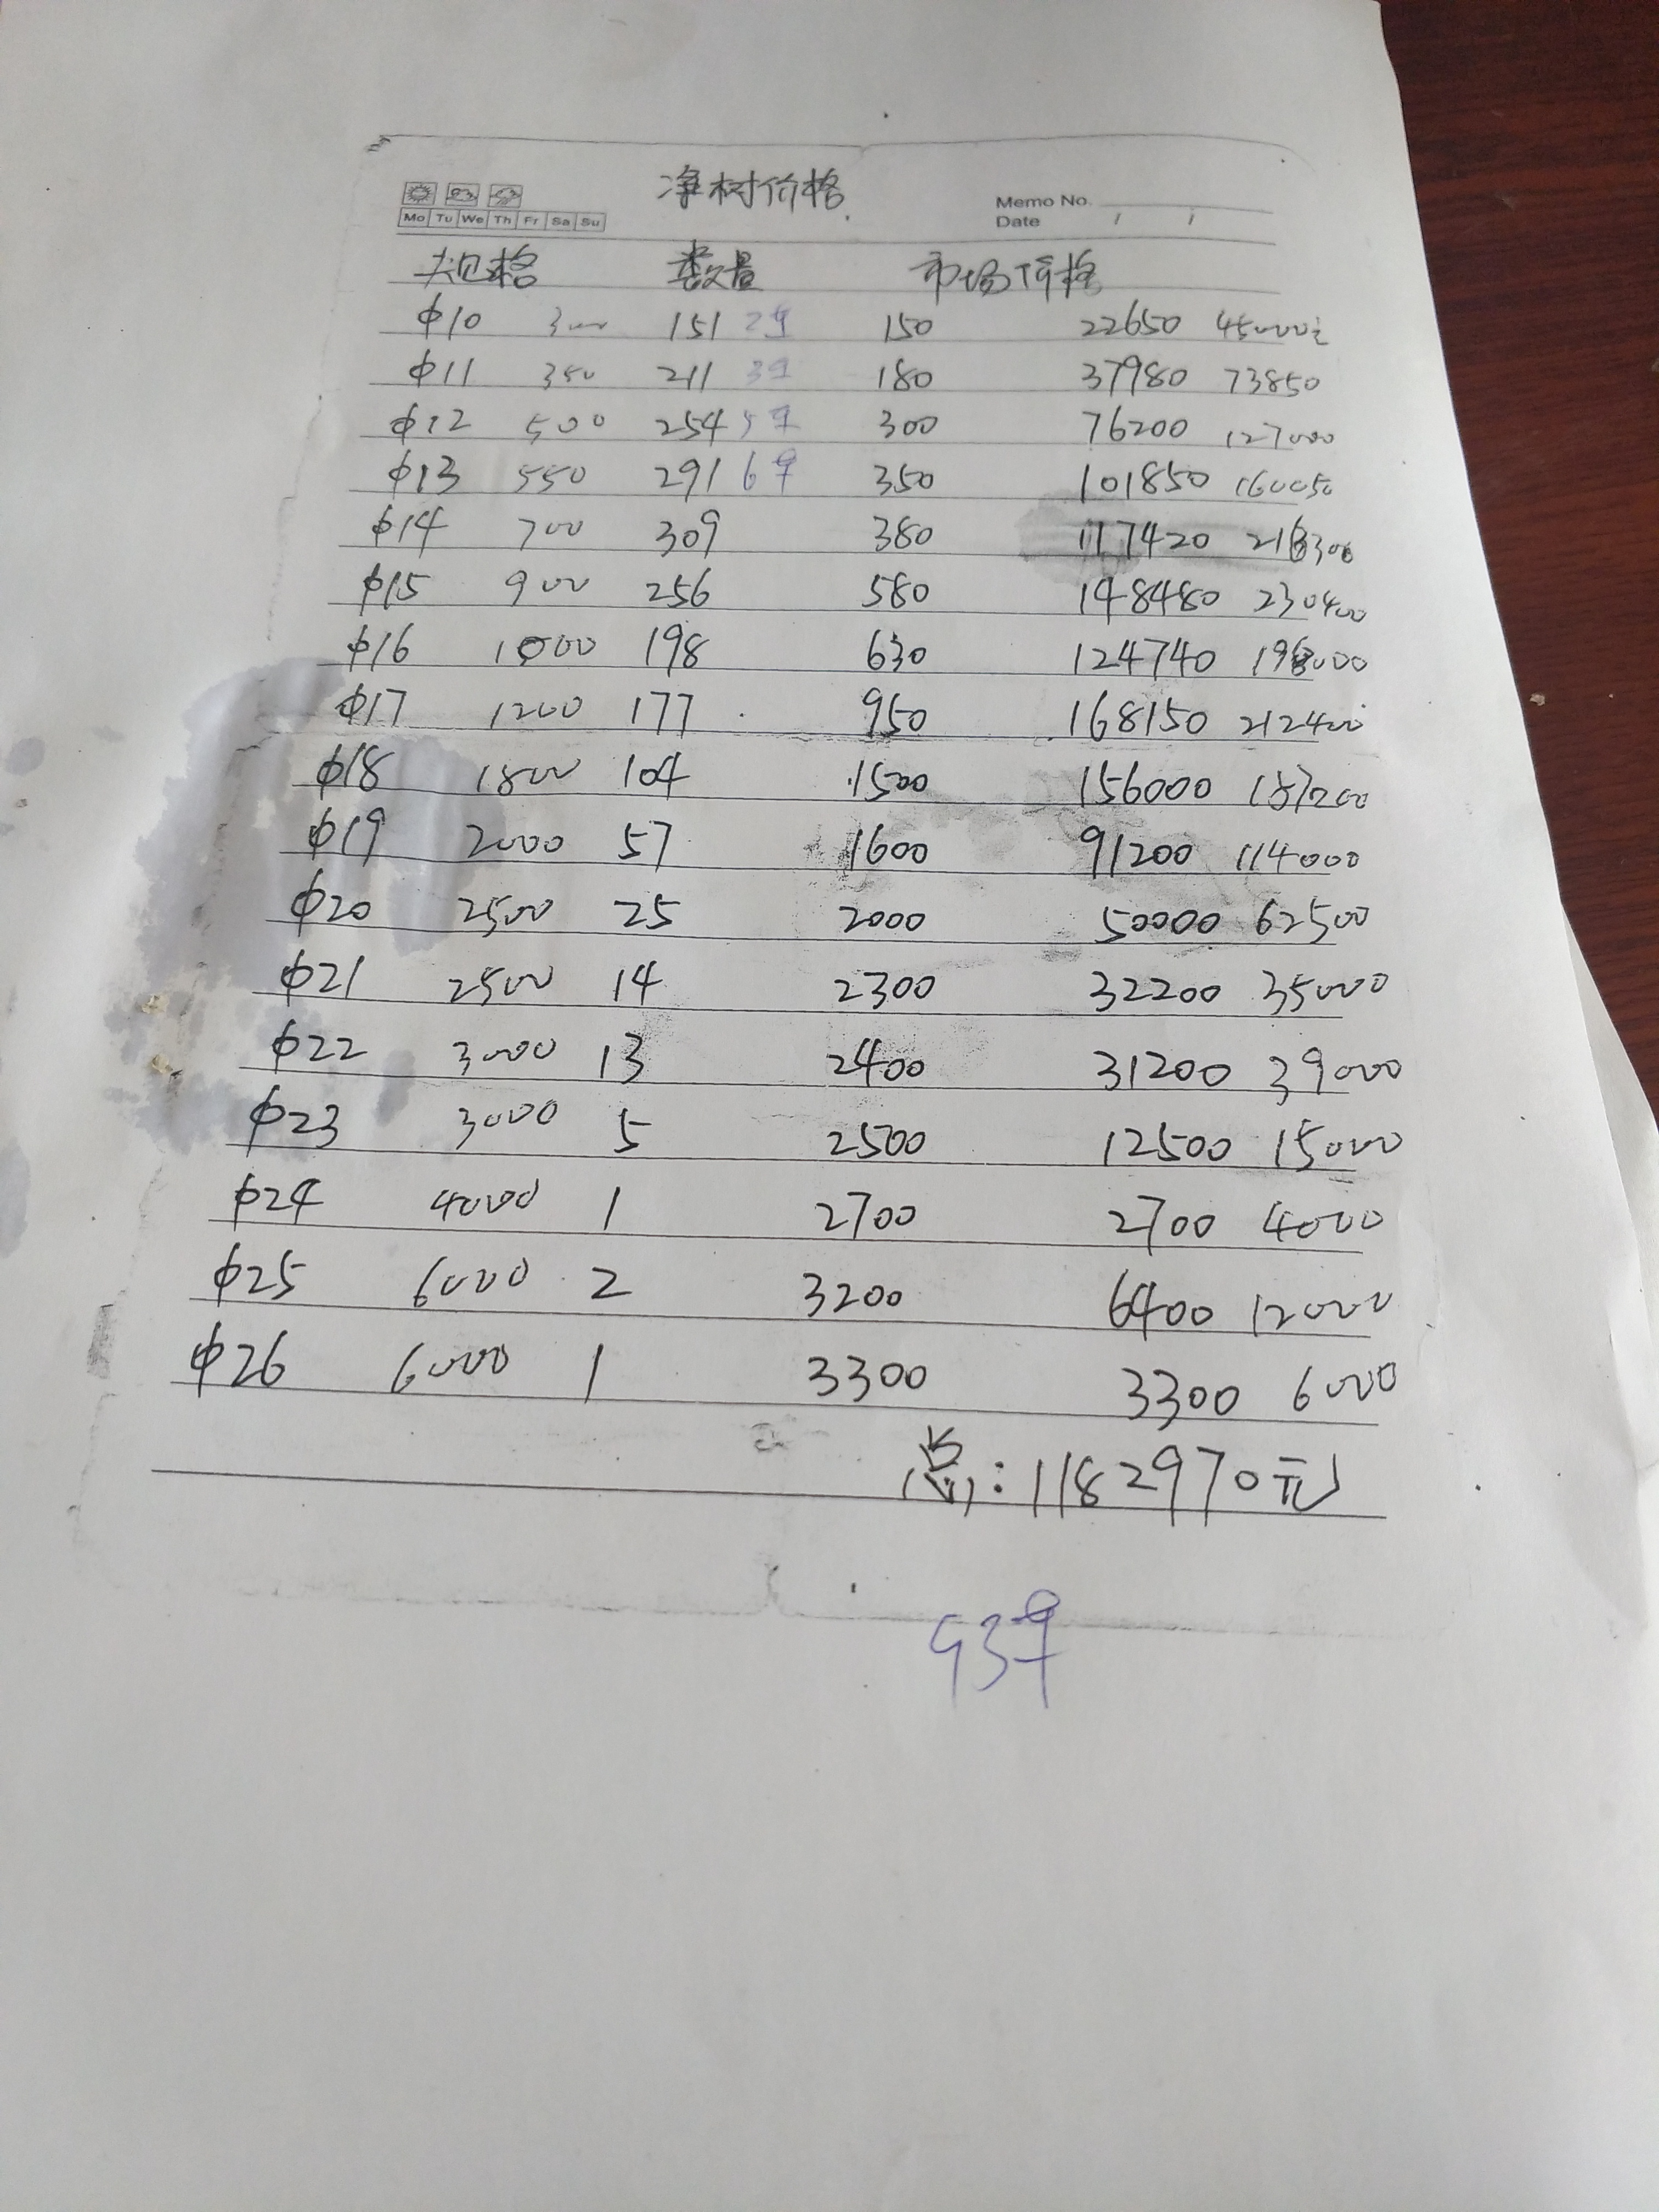 净树价格
Memo No.
Mo Tu We Th Fr Sa Su
Date / /
规格 数量 市场价格
φ10 300 151 29 150 22650 45000
φ11 350 211 39 180 37980 73850
φ12 500 254 59 300 76200 127000
φ13 550 291 69 350 101850 160050
φ14 700 309 380 117420 216300
φ15 900 256 580 148480 230400
φ16 1000 198 630 124740 198000
φ17 1200 177 950 168150 212400
φ18 1800 104 1500 156000 187200
φ19 2000 57 1600 91200 114000
φ20 2500 25 2000 50000 62500
φ21 2500 14 2300 32200 35000
φ22 3000 13 2400 31200 39000
φ23 3000 5 2500 12500 15000
φ24 4000 1 2700 2700 4000
φ25 6000 2 3200 6400 12000
φ26 6000 1 3300 3300 6000
总:1182970元